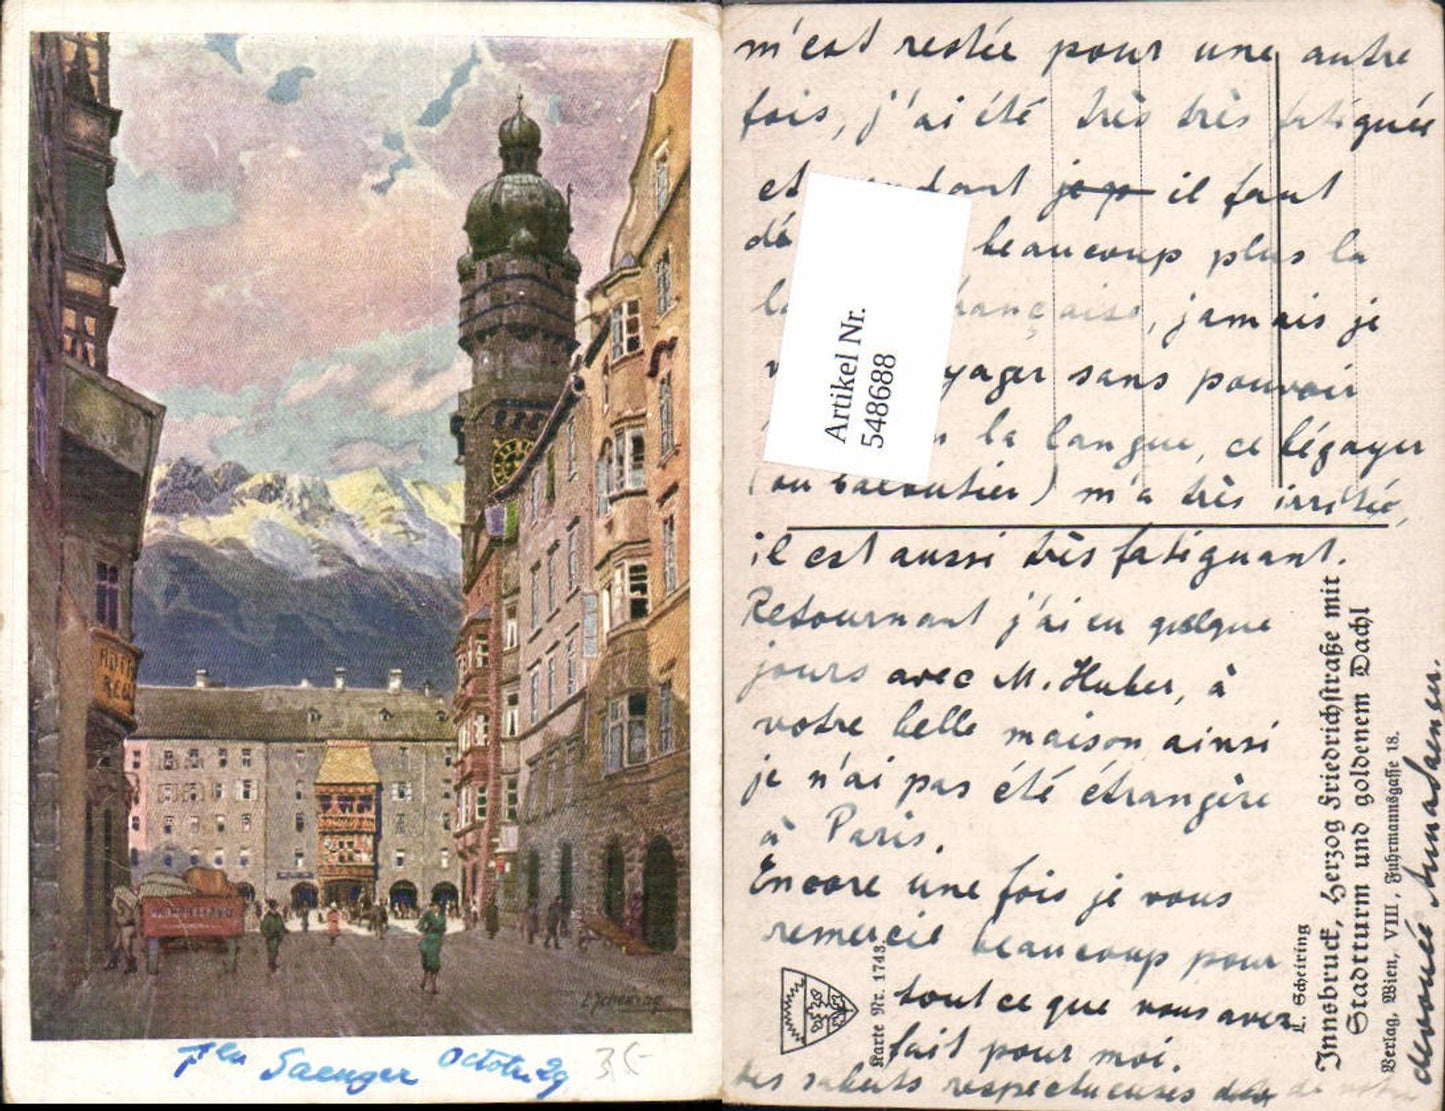 L. Scheiring
Saenger Octobre 29 35-
m'est restée pour une autre
fois, j'ai été très très fatiguée
et je p il faut
dé beaucoup plus la
la française, jamais je
yager sans pouvoir
la langue, ce bégayer
(ou balbutier) m'a très irritée,
il est aussi très fatiguant.
Retournant j'ai eu quelque
jours avec M. Huber, à
votre belle maison ainsi
je n'ai pas été étrangère
à Paris.
Encore une fois je vous
remercie beaucoup pour
tout ce que vous avez
fait pour moi.
saluts respectueuses de votre
devouée
Artikel Nr.
548688
Karte Nr. 1743.
L. Scheiring
Innsbruck, Herzog Friedrichstraße mit
Stadtturm und goldenem Dachl
Verlag, Wien, VIII, Fuhrmannsgasse 18.